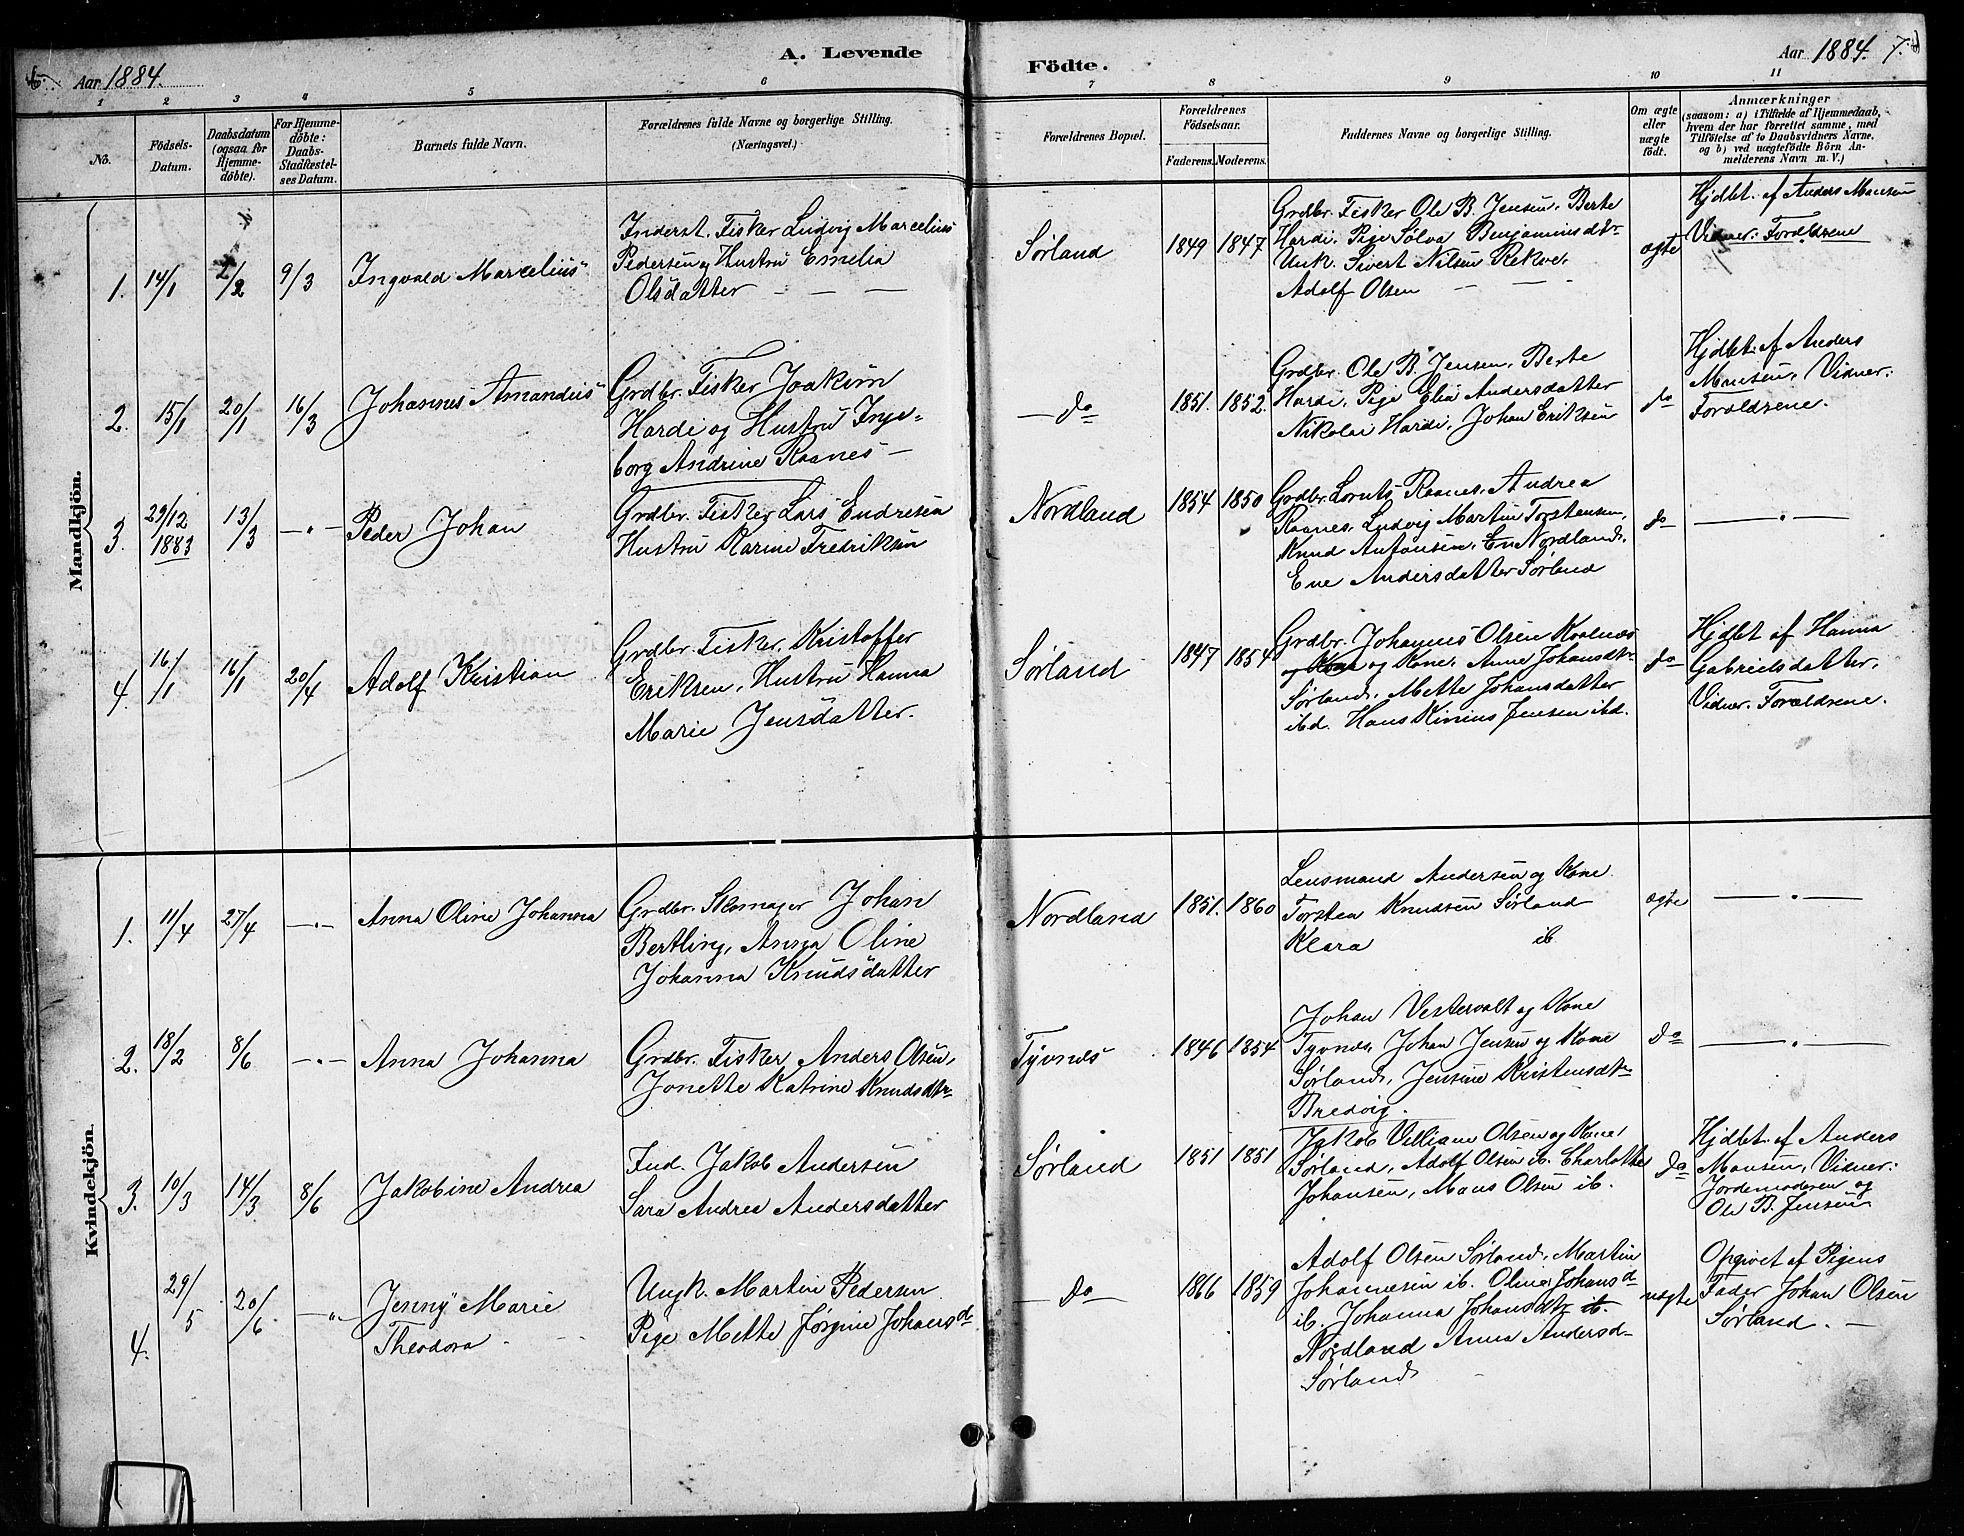 6. Aar 1884. A. Levende
Födte. Aar 1884. 7.
1 2 3 4 5 6 7 8 9 10 11
No.
Födsels-
Datum.
Daabsdatum
(ogsaa for
Hjemme-
döbte).
For Hjemme-
döbte:
Daabs-
Stadfæstel-
ses Datum.
Barnets fulde Navn.
Forældrenes fulde Navne og borgerlige Stilling.
(Næringsvei.)
Forældrenes Bopæl.
Forældrenes
Födselsaar.
Faderens. Moderens.
Faddernes Navne og borgerlige Stilling.
Om ægte
eller
uægte
födt.
Anmærkninger
(saasom: a) i Tilfælde af Hjemmedaab,
hvem der har forrettet samme, med
Tilföielse af to Daabsvidners Navne.
og b) ved uægtefödte Börn An-
melderens Navn m. V.)
Mandkjön.
1. 14/1 2/2 9/3 Ingvald Marcelius
Inderst. Fisker Ludvig Marcelius
Pedersen og Hustru Emelia
Olsdatter — — —
Sørland 1849 1847
Grdbr. Fisker Ole B. Jensen, Berte
Hardi, Pige Sølva Benjaminsdtr
Unk. Sivert Nilsen Rekve,
Adolf Olsen
ægte
Hjdbt. af Anders Mansen
Vidner: Forældrene
2. 15/1 20/1 16/3 Johannes Amandus
Grdbr. Fisker Joakim
Hardi og Hustru Inge-
borg Andrine Raanes —
— do — 1851. 1852.
Grdbr. Ole B. Jensen, Berte
Hardi, Pige Elia Andersdatter
Nikolai Hardi, Johan Eriksen
do
Hjdbt. af Anders
Mansen, Vidner:
Forældrene.
3. 29/12 1883 13/3 — " — Peder Johan
Grdbr. Fisker Lars Endresen
Hustru Karine Fredriksen
Nordland 1854 1850
Grdbr. Lornts Raanes, Andrea
Raanes, Ludvig Martin Torstensen,
Knud Antonsen, En Nordland,
Ene Andersdatter Sørland
do — " —
4. 16/1 16/1 20/4 Adolf Kristian
Grdbr. Fisker, Kristoffer
Eriksen, Hustru Hanna
Marie Jensdatter.
Sørland 1847 1854
Grdbr. Johannes Olsen Kvalnæs
og Kone, Anne Johansdtr
Sørland, Mette Johansdatter
ibd. Hans Kinius Jensen ibd.
do
Hjdbt af Hanna
Gabrielsdatter,
Vidner. Forældrene.
Kvindekjön.
1. 11/4 27/4 — " — Anna Oline Johanna
Grdbr. Skomager Johan
Bertling, Anna Oline
Johanna Knudsdatter
Nordland 1851. 1860
Lensmand Andersen og Kone
Torsten Knudsen Sørland
Klara ib.
ægte — " —
2. 18/2 8/6 — " — Anna Johanna
Grdbr. Fisker Anders Olsen,
Jonette Katrine Knudsdtr
Tyvnes 1846 1854
Johan Vestervalt og Kone
Tyvnes, Johan Jensen og Kone
Sørland, Jensine Kristensdtr
Bredvig.
do — " —
3. 10/3 14/3 8/6 Jakobine Andrea
Ind. Jakob Andersen
Sara Andrea Andersdatter
Sørland 1851 1851
Jakob Villiam Olsen og Kone,
Sørland, Adolf Olsen ib. Charlotte
Johansen, Mans Olsen ib.
do
Hjdbt. af Anders
Mansen, Vidner:
Jordemoderen og
Ole B. Jensen
4. 29/5 20/6 — " — Jenny Marie
Theodora.
Ungk. Martin Pedersen
Pige Mette Jørgine Johansd
— do — 1866 1859
Adolf Olsen Sørland, Martin
Johannesen ib. Oline Johansd
ib. Johanna Johansdtr ib.
Nordland Anna Andersd
Sørland
uægte
Opgivet af Pigens
Fader Johan Olsen
Sørland. —